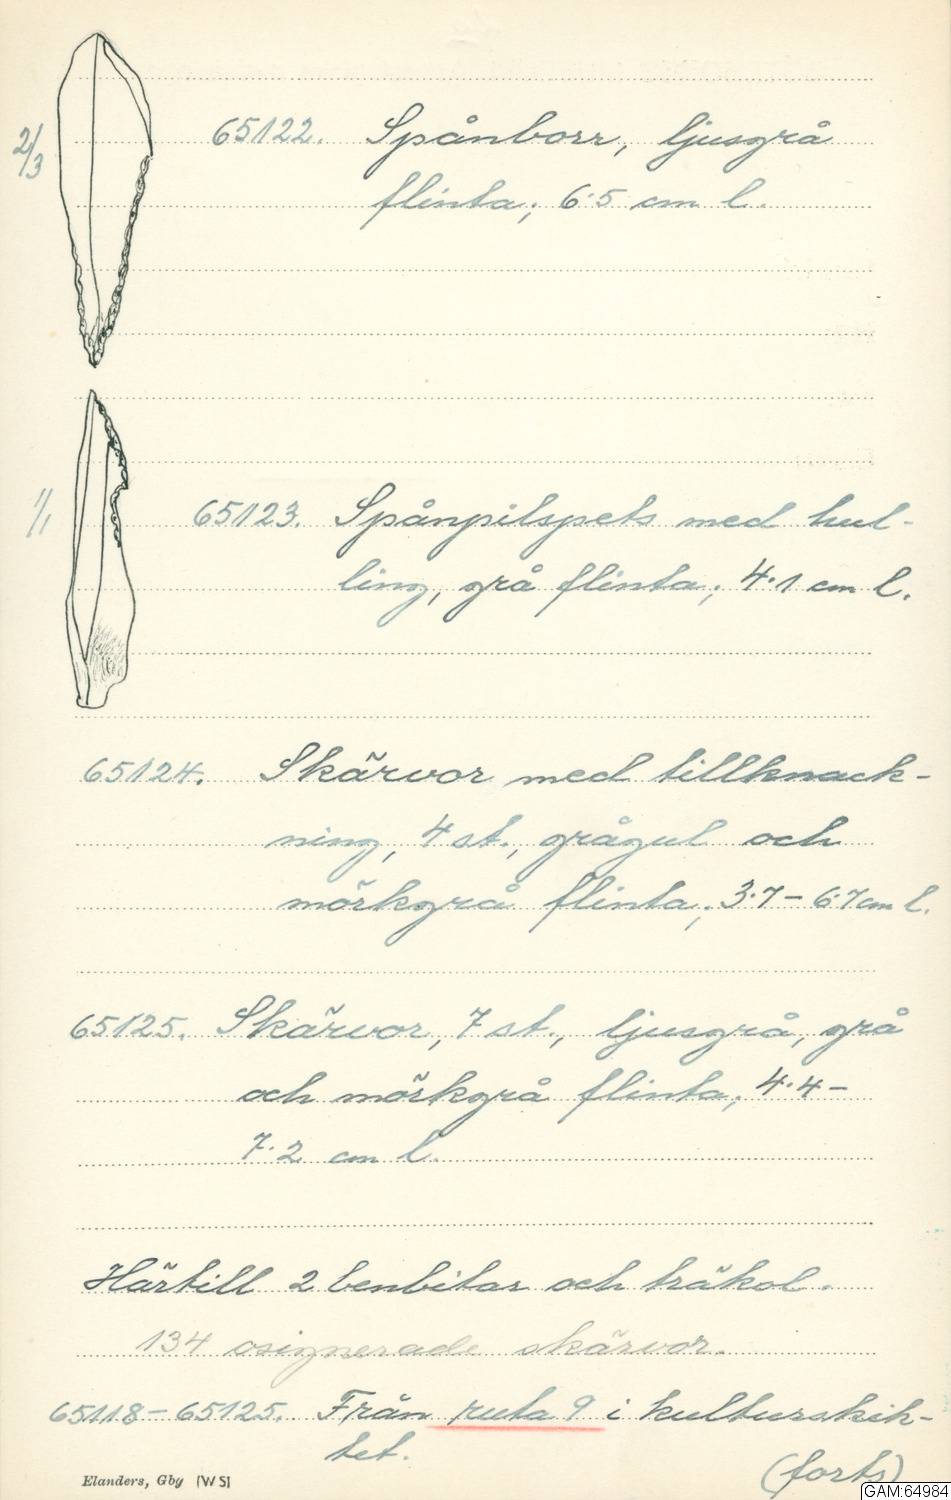 2/3
65122. Spånborr, ljusgrå
flinta; 6.5 cm l.
1/1
65123. Spånpilspets med hul-
ling, grå flinta; 4.1 cm l.
65124. Skärvor med tillknack-
ning, 4 st., grågul och
mörkgrå flinta; 3.7 – 6.7 cm l.
65125. Skärvor, 7 st., ljusgrå, grå
och mörkgrå flinta; 4.4 –
7.2 cm l.
Härtill 2 benbitar och träkol.
134 osignerade skärvor.
65118 – 65125. Från ruta 9 i kulturskik-
tet.
(forts)
Elanders, Gby [WS]
GAM:64984